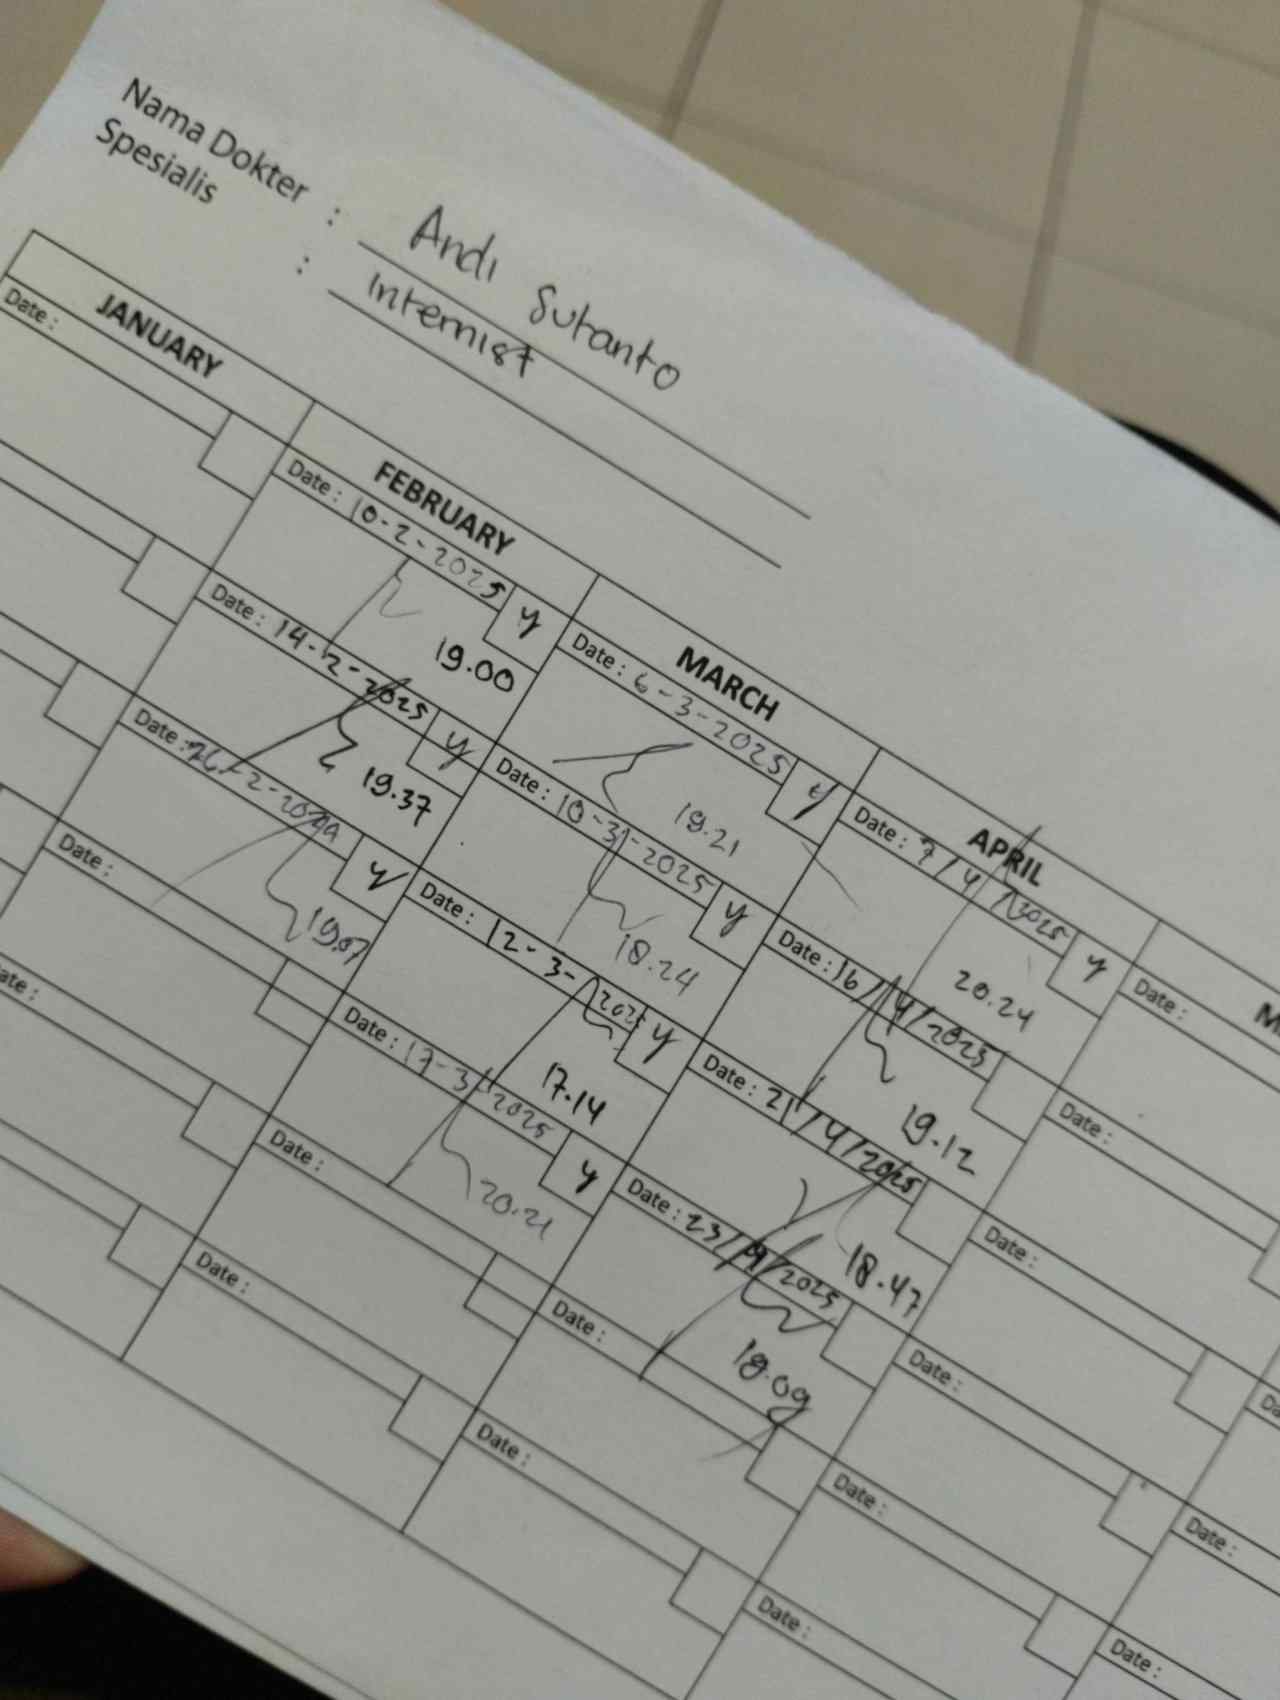 Nama Dokter : Andi Sutanto
Spesialis : Internist
JANUARY
Date :
FEBRUARY
Date : 10-2-2025 y
19.00
Date : 14-2-2025 y
19.37
Date : 26-2-20 y
19.07
Date :
Date :
MARCH
Date : 6-3-2025 y
19.21
Date : 10-3-2025 y
18.24
Date : 12-3-202 y
17.14
Date : 17-3-2025 y
20.21
Date :
Date :
APRIL
Date : 7/4/2025 y
20.24
Date : 16/4/2025
19.12
Date : 21/4/2025
18.47
Date : 23/4/2025
19.09
Date :
Date :
M
Date :
Date :
Date :
Date :
Date :
Date :
Da
Date :
Date :